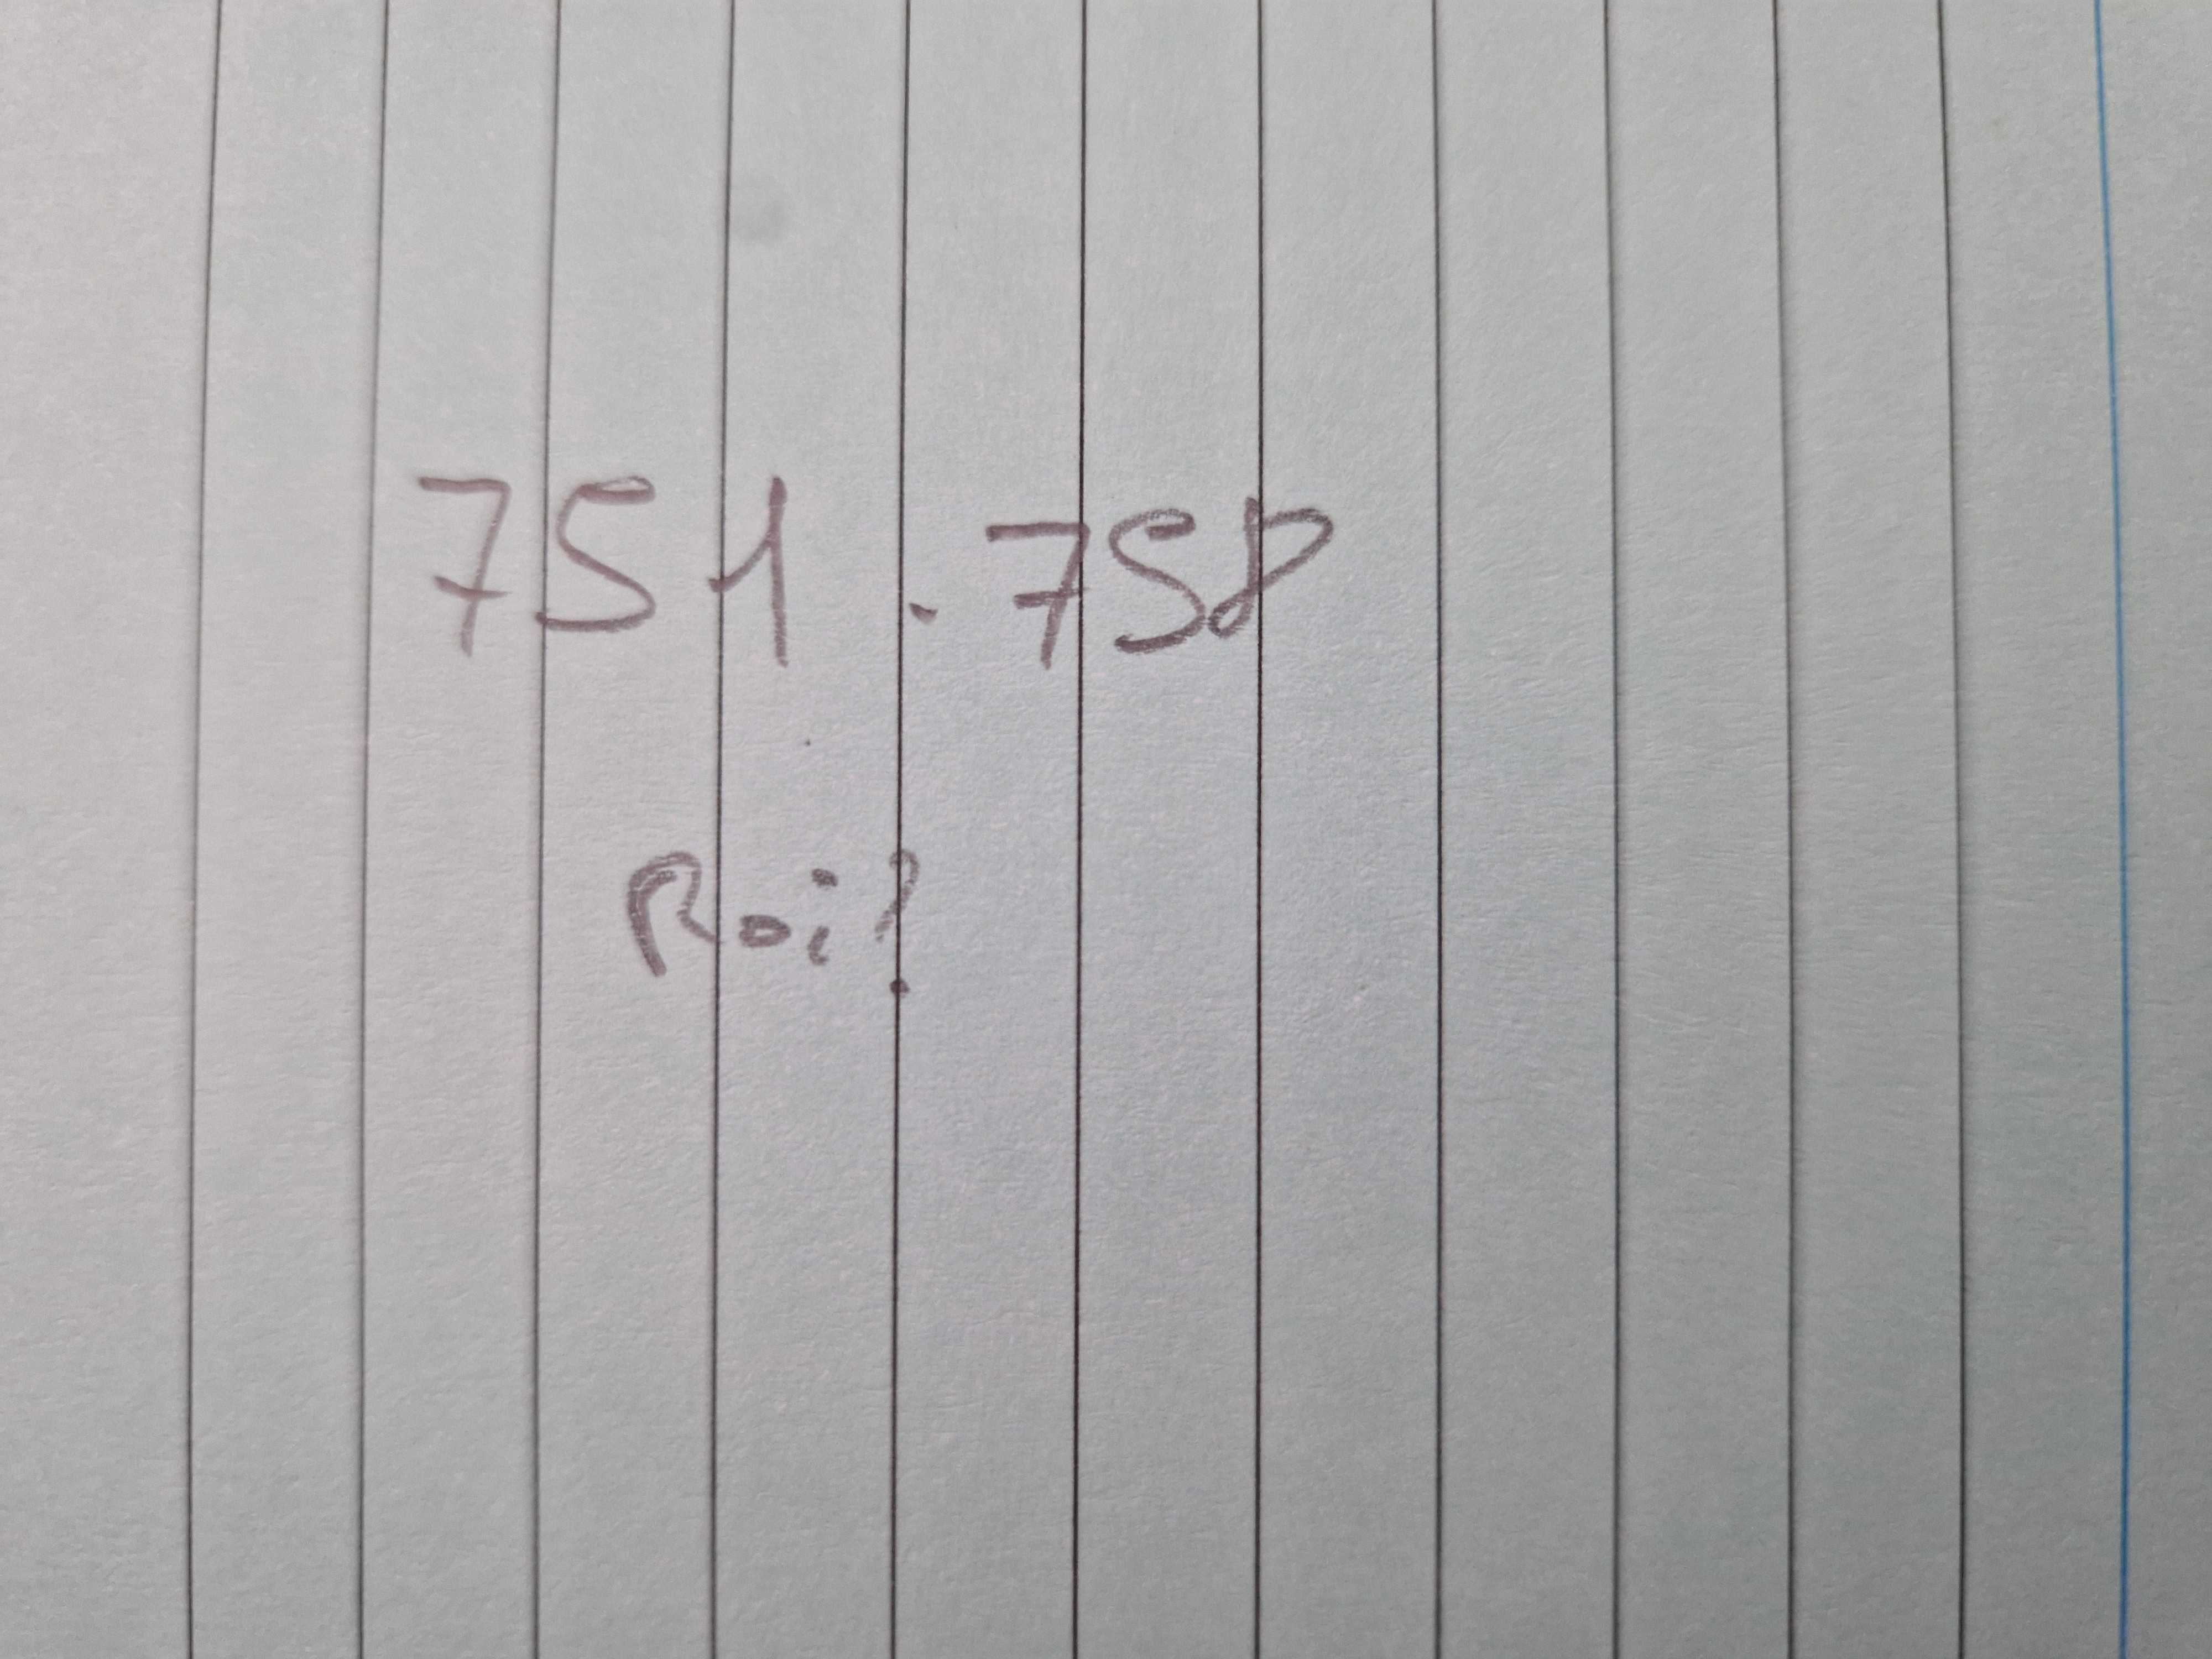 751.758
Roi?